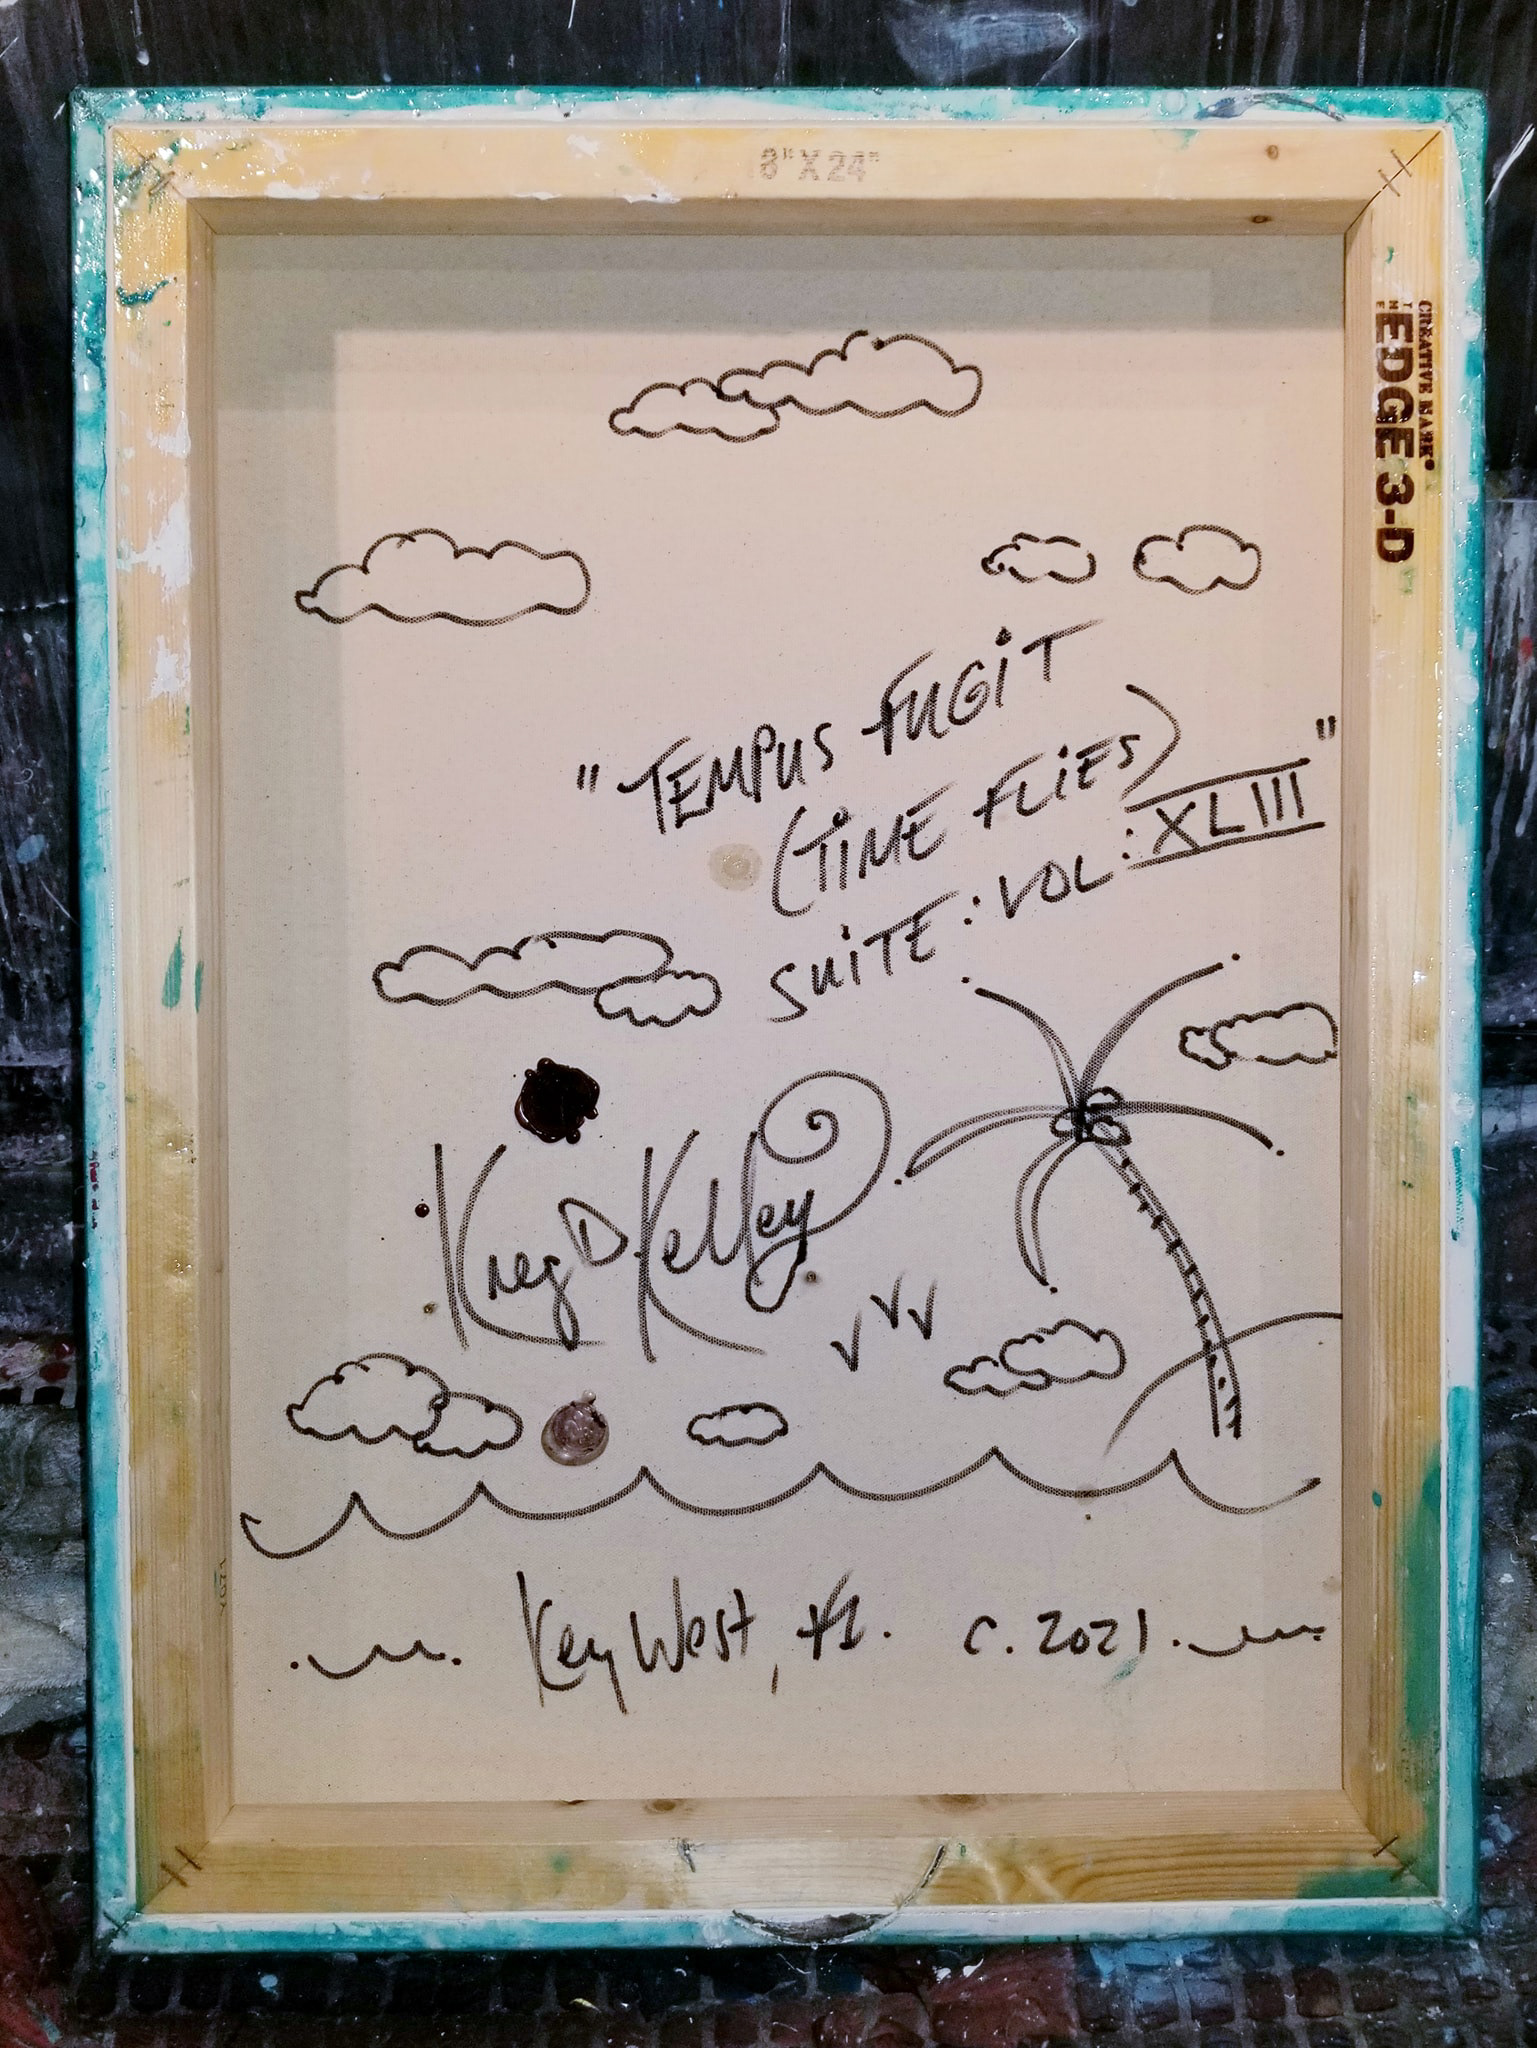 8" X 24"
CREATIVE MARK®
THE
EDGE 3-D
"TEMPUS FUGIT
(TIME FLIES)
SUITE: VOL: XLIII"
Kreg D Kelley
Key West, Fl. c. 2021